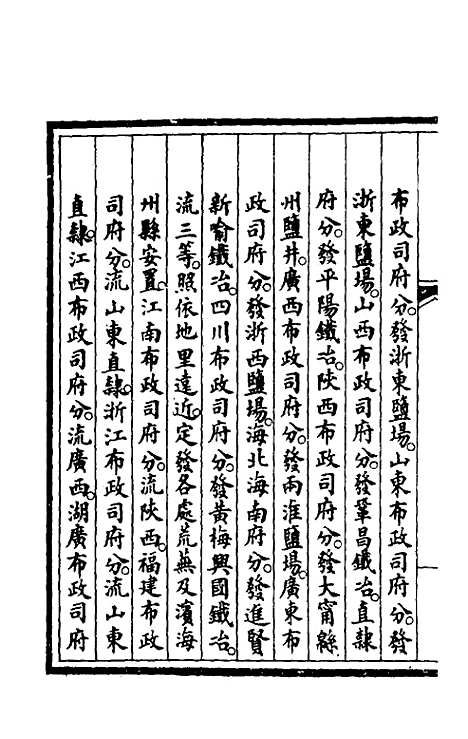 布政司府分。發浙東鹽場。山東布政司府分。發
浙東鹽場。山西布政司府分。發鞏昌鐵冶。直隷
府分。發平陽鐵冶。陜西布政司府分。發大甯綿
州鹽井。廣西布政司府分。發兩淮鹽場。廣東布
政司府分。發浙西鹽場。海北海南府分。發進賢
新喻鐵冶。四川布政司府分。發黃梅興國鐵冶。
流三等。照依地里遠近。定發各處荒蕪及濱海
州縣安置。江南布政司府分。流陜西。福建布政
司府分。流山東直隷。浙江布政司府分。流山東
直隷。江西布政司府分。流廣西。湖廣布政司府